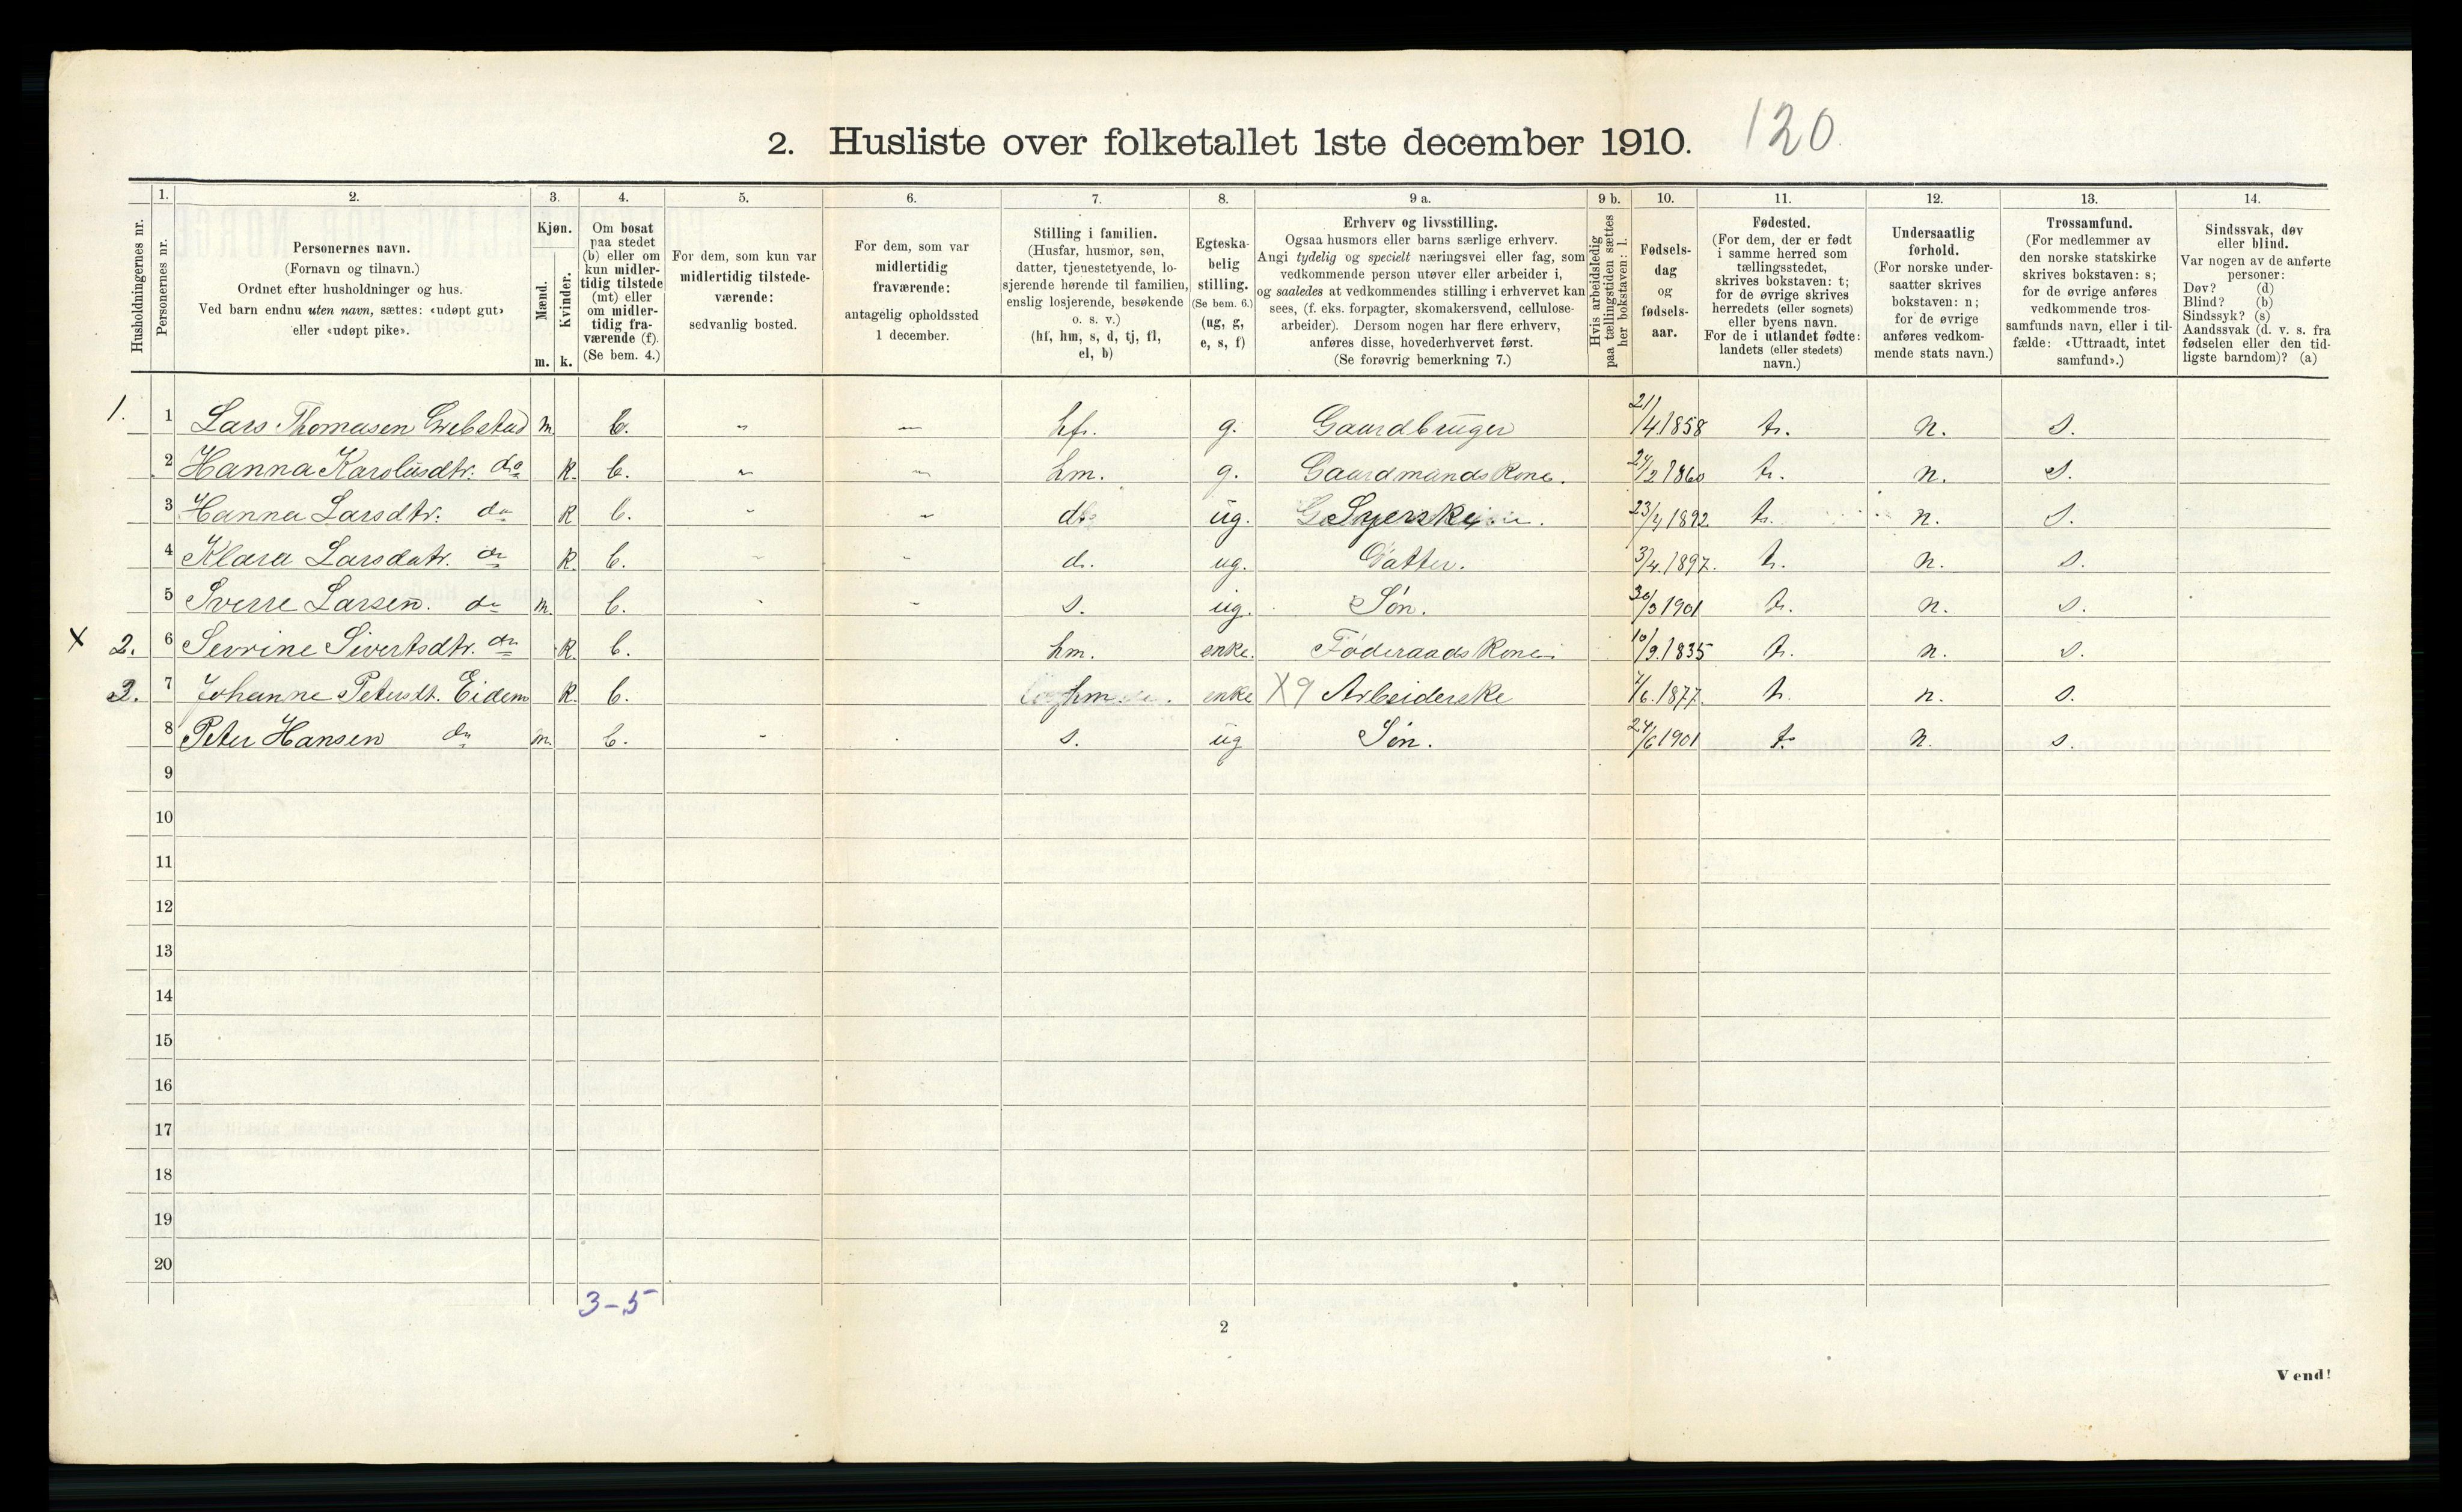 2. Husliste over folketallet 1ste december 1910. 120.
Husholdningernes nr.
1. Personernes nr.
2. Personernes navn.
(Fornavn og tilnavn.)
Ordnet efter husholdninger og hus.
Ved barn endnu uten navn, sættes: «udøpt gut»
eller «udøpt pike».
3. Kjøn.
Mænd. Kvinder.
m. k.
4. Om bosat
paa stedet
(b) eller om
kun midler-
tidig tilstede
(mt) eller
om midler-
tidig fra-
værende (f).
(Se bem. 4.)
5. For dem, som kun var
midlertidig tilstede-
værende:
sedvanlig bosted.
6. For dem, som var
midlertidig
fraværende:
antagelig opholdssted
1 december.
7. Stilling i familien.
(Husfar, husmor, søn,
datter, tjenestetyende, lo-
sjerende hørende til familien,
enslig losjerende, besøkende
o. s. v.)
(hf, hm, s, d, tj, fl,
el, b)
8. Egteska-
belig
stilling.
(Se bem. 6.)
(ug, g,
e, s, f)
9 a. Erhverv og livsstilling.
Ogsaa husmors eller barns særlige erhverv.
Angi tydelig og specielt næringsvei eller fag, som
vedkommende person utøver eller arbeider i,
og saaledes at vedkommendes stilling i erhvervet kan
sees, (f. eks. forpagter, skomakersvend, cellulose-
arbeider). Dersom nogen har flere erhverv,
anføres disse, hovederhvervet først.
(Se forøvrig bemerkning 7.)
9 b. Hvis arbeidsledig
paa tællingstiden sættes
her bokstaven: l.
10. Fødsels-
dag
og
fødsels-
aar.
11. Fødested.
(For dem, der er født
i samme herred som
tællingsstedet,
skrives bokstaven: t;
for de øvrige skrives
herredets (eller sognets)
eller byens navn.
For de i utlandet fødte:
landets (eller stedets)
navn.)
12. Undersaatlig
forhold.
(For norske under-
saatter skrives
bokstaven: n;
for de øvrige
anføres vedkom-
mende stats navn.)
13. Trossamfund.
(For medlemmer av
den norske statskirke
skrives bokstaven: s;
for de øvrige anføres
vedkommende tros-
samfunds navn, eller i til-
fælde: «Uttraadt, intet
samfund».)
14. Sindssvak, døv
eller blind.
Var nogen av de anførte
personer:
Døv? (d)
Blind? (b)
Sindssyk? (s)
Aandssvak (d. v. s. fra
fødselen eller den tid-
ligste barndom)? (a)
1. 1 Lars Thomasen m. b. " — hf. g. Gaardbruger 21/4 1858 t. n. s.
2 Hanna Karolusdtr. do K. b. " " hm. g. Gaardmandskone. 24/2 1860 t. n. s.
3 Hanna Larsdtr. do K b. " " d. ug. Syerske 23/4 1892. t. n. s.
4 Klara Larsdatr. do K. b. " " d. ug. Datter. 3/4. 1897. t. n. s.
5 Sverre Larsen. do m. b. " " s. ug. Søn. 30/3 1901 t. n. s.
X 2. 6 Sevrine Sivertsdtr. do K. b. hm. enke. Föderaadskone. 10/9. 1835 t. n. s.
3. 7 Johanne Petersdt. Eidem K. b. hm. enke X9 Arbeiderske /6. 1877. t. n. s.
8 Peter Hansen do m. b. " s. ug Søn. 24/6 1901 t. n. s.
9
10
11
12
13
14
15
16
17
18
19
20
3-5
2
Vend!